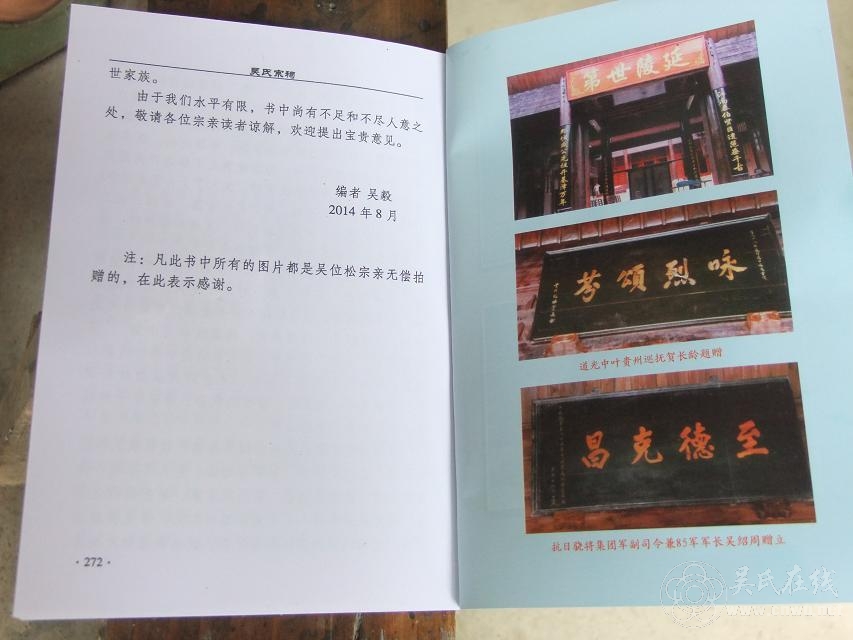 吴氏宗祠
世家族。
由于我们水平有限，书中尚有不足和不尽人意之
处，敬请各位宗亲读者谅解，欢迎提出宝贵意见。
编者 吴毅
2014 年 8 月
注：凡此书中所有的图片都是吴位松宗亲无偿拍
赠的，在此表示感谢。
·272·
第世陵延
芳頌烈咏
道光中叶贵州巡抚贺长龄题赠
昌克德至
抗日骁将集团军副司令兼85军军长吴绍周赠立
吴氏在线